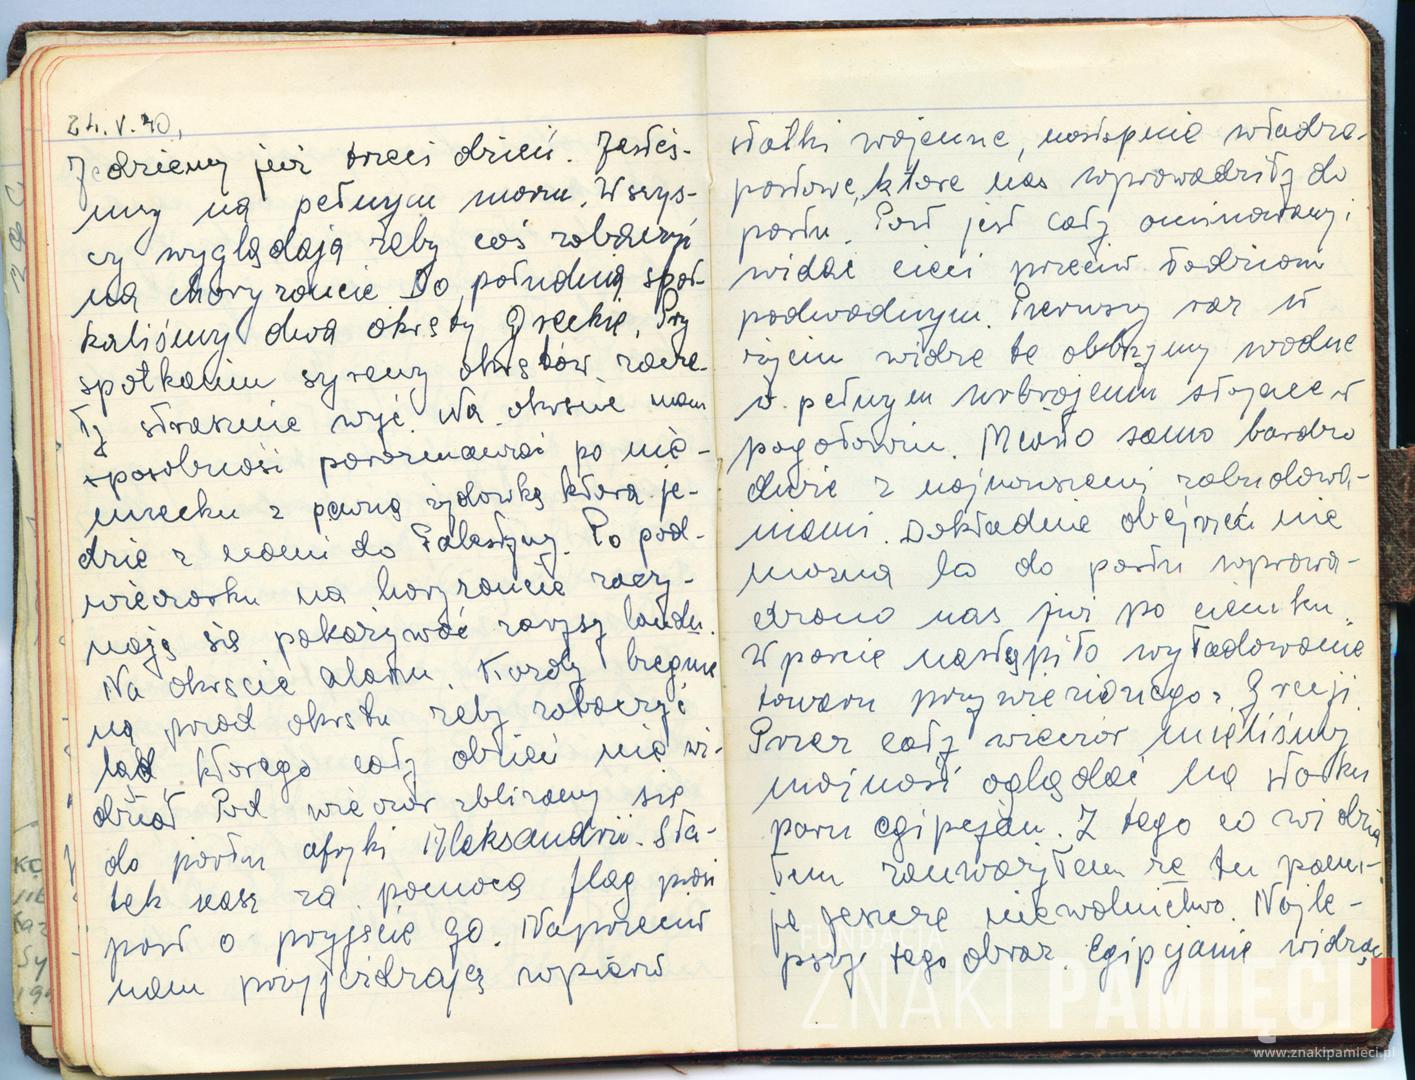 24.V.40,
Jedziemy już trzeci dzień. Jesteś-
my na pełnym morzu. Wszys-
cy wyglądają żeby coś zobaczyć
na choryzoncie Do południa spot-
kaliśmy dwa okręty Greckie. Przy
spotkaniu syreny okrętów zacze-
ły strasznie wyć. Na okręcie mam
sposobność porozmawiać po nie-
miecku z pewną żydówką która je-
dzie z nami do Palestyny. Po pod-
wieczorku na horyzoncie zaczy-
nają się pokazywać zarysy landu.
Na okręcie alarm. Każdy biegnie
na przod okrętu żeby zobaczyć
ląd którego cały dzień nie wi-
dział. Pod wieczór zbliżamy się
do portu afryki Aleksandrii. Sta-
tek nasz za pomocą flag prosi
port o przyjęcie go. Naprzeciw
nam przyjeżdzają wpierw
statki wojenne, następnie władze
portowe, które nas wprowadziły do
portu. Port jest cały ominowany i
widać sieci przeciw łodziom
podwodnym. Pierwszy raz w
życiu widzę te olbrzymy wodne
w pełnym uzbrojeniu stojące w
pogotowiu. Miasto samo bardzo
duże z najnowszemi zabudowa-
niami. Dokładnie obejrzeć nie
można bo do portu wprowa-
dzono nas już po ciemku.
W porcie nastąpiło wyładowanie
towaru przywiezionego z Grecji.
Przez cały wieczór mieliśmy
możność oglądać na statku
paru egipcjan. Z tego co widzia
łem zauważyłem że tu panu-
je jeszcze niewolnictwo. Najle-
pszy tego obraz. Egipcjanie widząc
FUNDACJA
ZNAKI PAMIĘCI
www.znakipamieci.pl